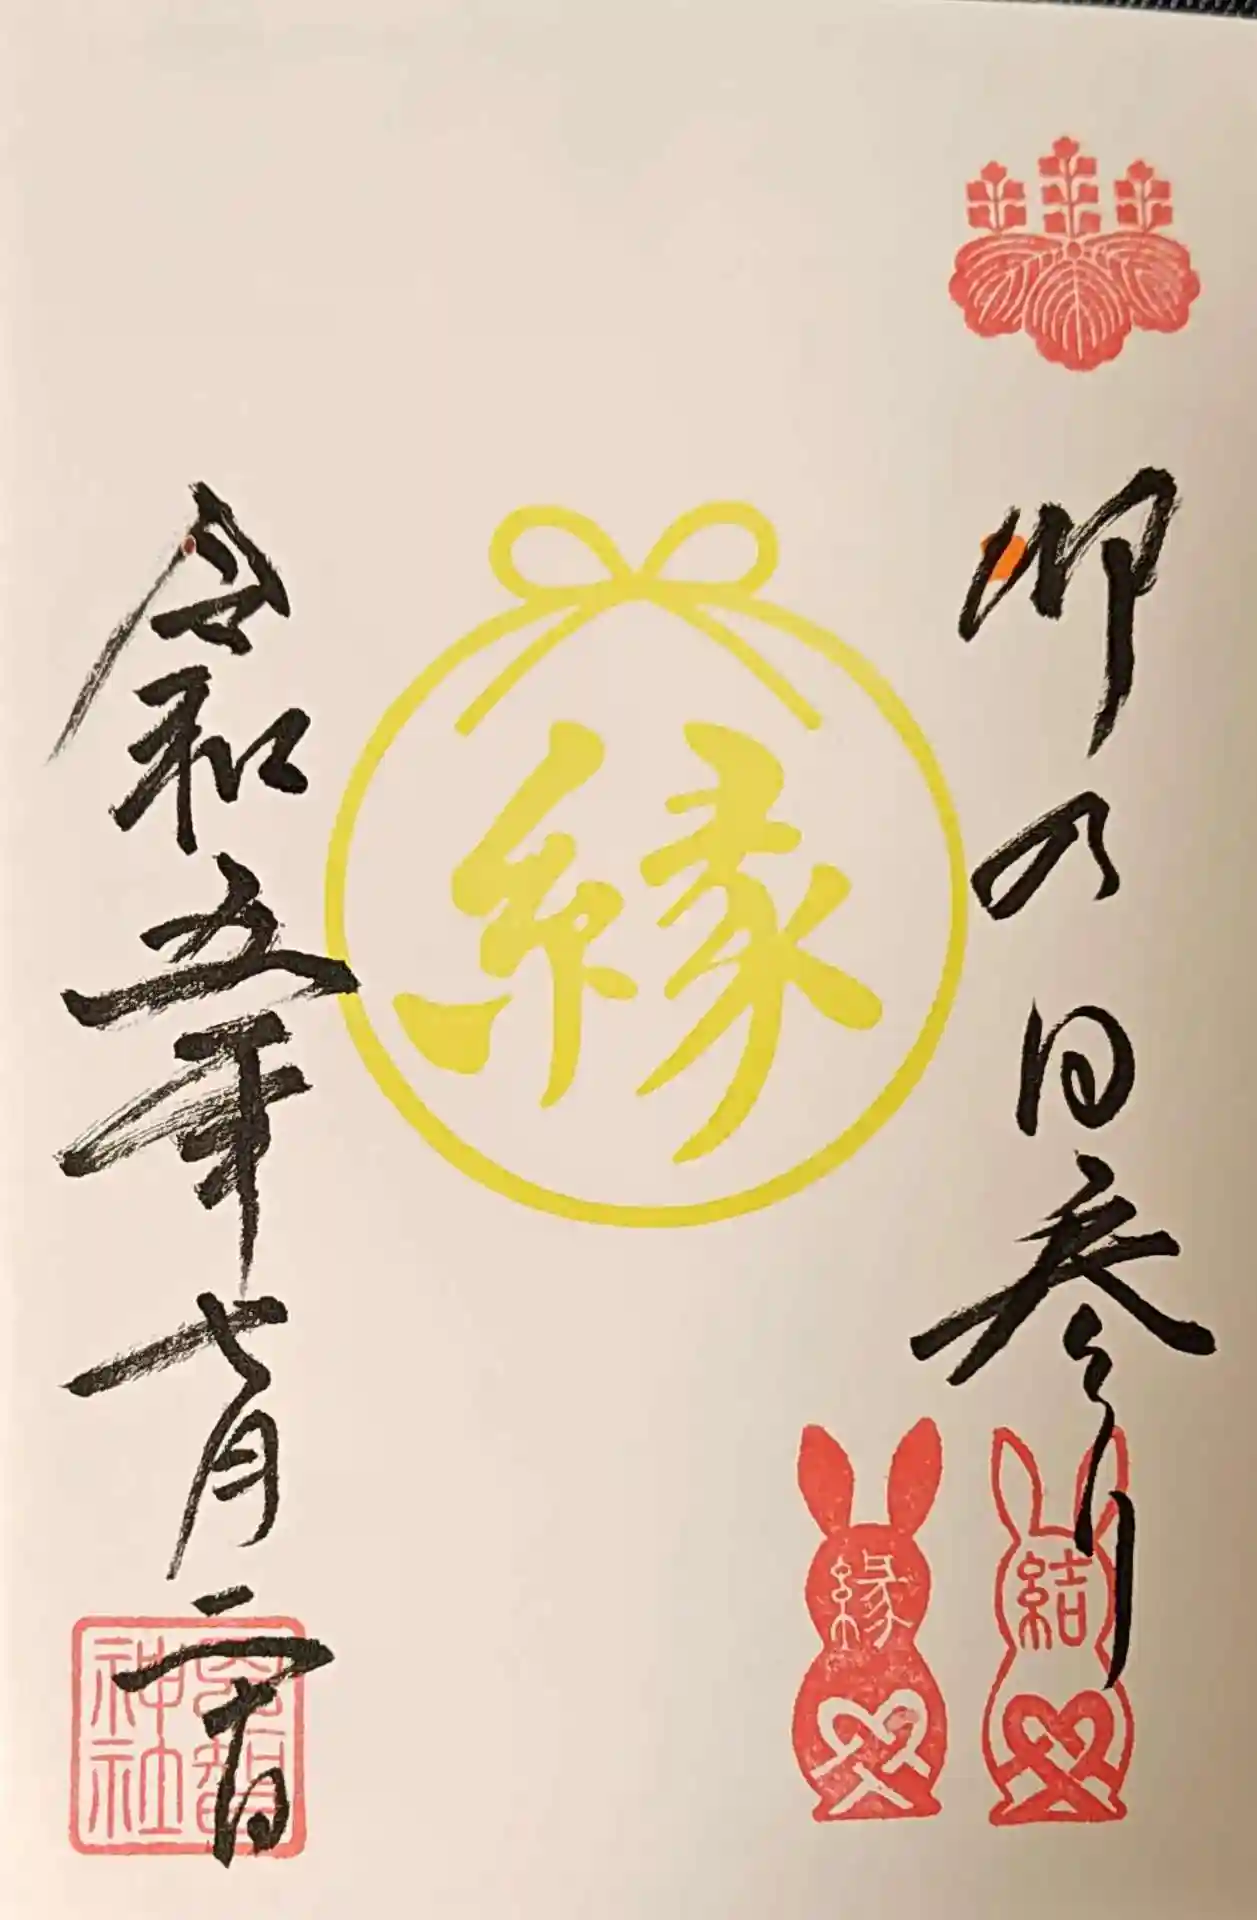 卯の日参り
縁
結
縁
令和五年七月二十日
神社